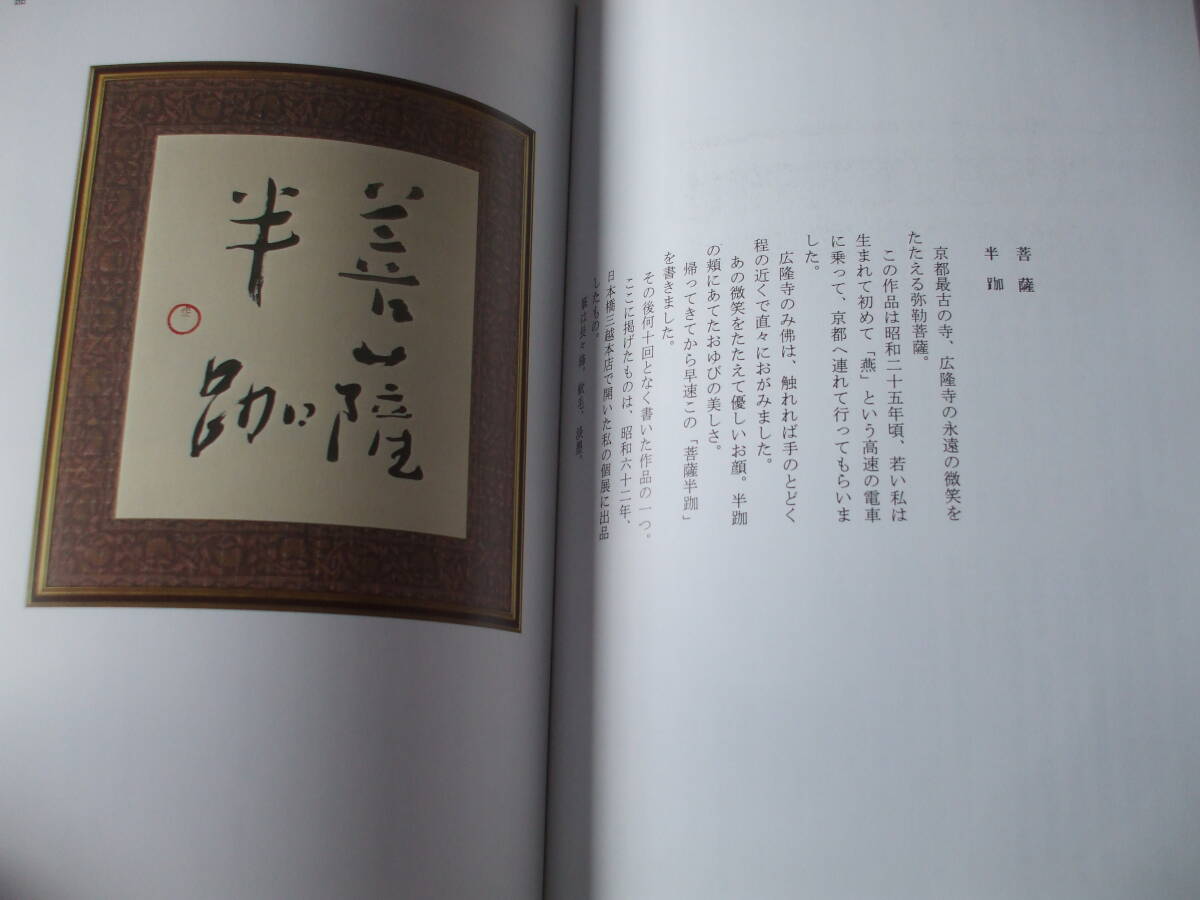 菩薩
半跏
京都最古の寺、広隆寺の永遠の微笑を
たたえる弥勒菩薩。
この作品は昭和二十五年頃、若い私は
生まれて初めて「燕」という高速の電車
に乗って、京都へ連れて行ってもらいま
した。
広隆寺のみ佛は、触れれば手のとどく
程の近くで直々におがみました。
あの微笑をたたえて優しいお顔。半跏
の頬にあてたおゆびの美しさ。
帰ってきてから早速この「菩薩半跏」
を書きました。
その後何十回となく書いた作品の一つ。
ここに掲げたものは、昭和六十二年、
日本橋三越本店で開いた私の個展に出品
したもの。
淡墨、
菩薩
半跏